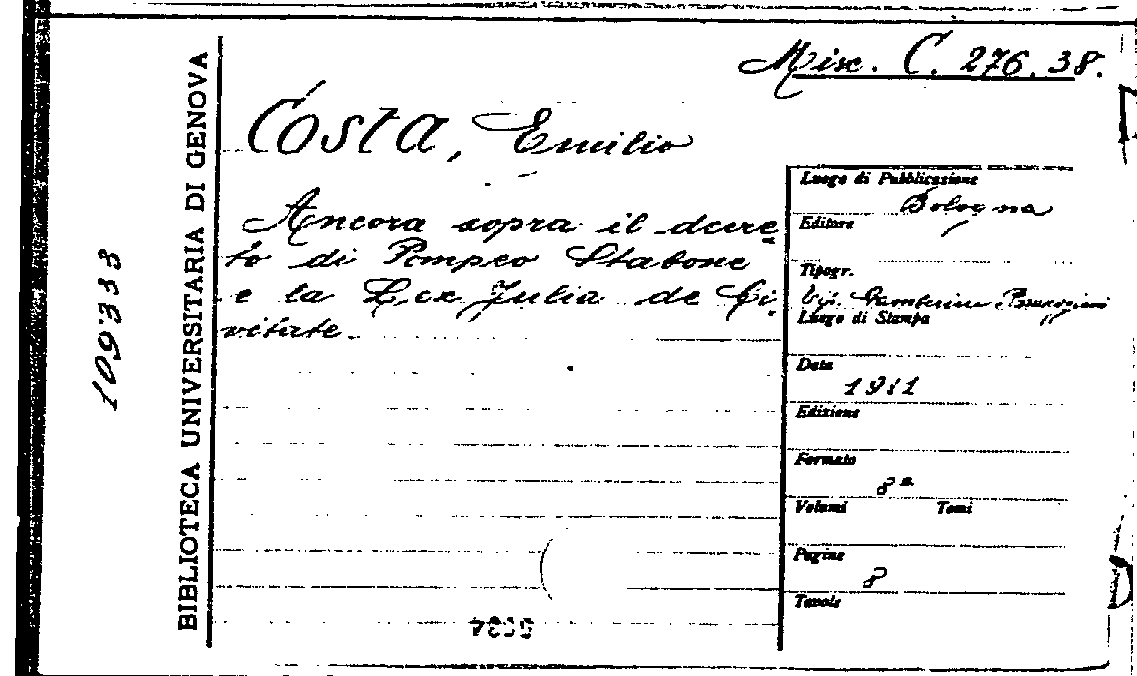 Misc. C. 276.38.
BIBLIOTECA UNIVERSITARIA DI GENOVA
109333
Costa, Emilio
Ancora sopra il decre
to di Pompeo Strabone
e la Lex Julia de Ci
vitate.
Luogo di Pubblicazione
Bologna
Editore
Tipogr.
Tip. Gamberini Parmeggiani
Luogo di Stampa
Data
1911
Edizione
Formato
8°
Volumi Tomi
Pagine
8
Tavole